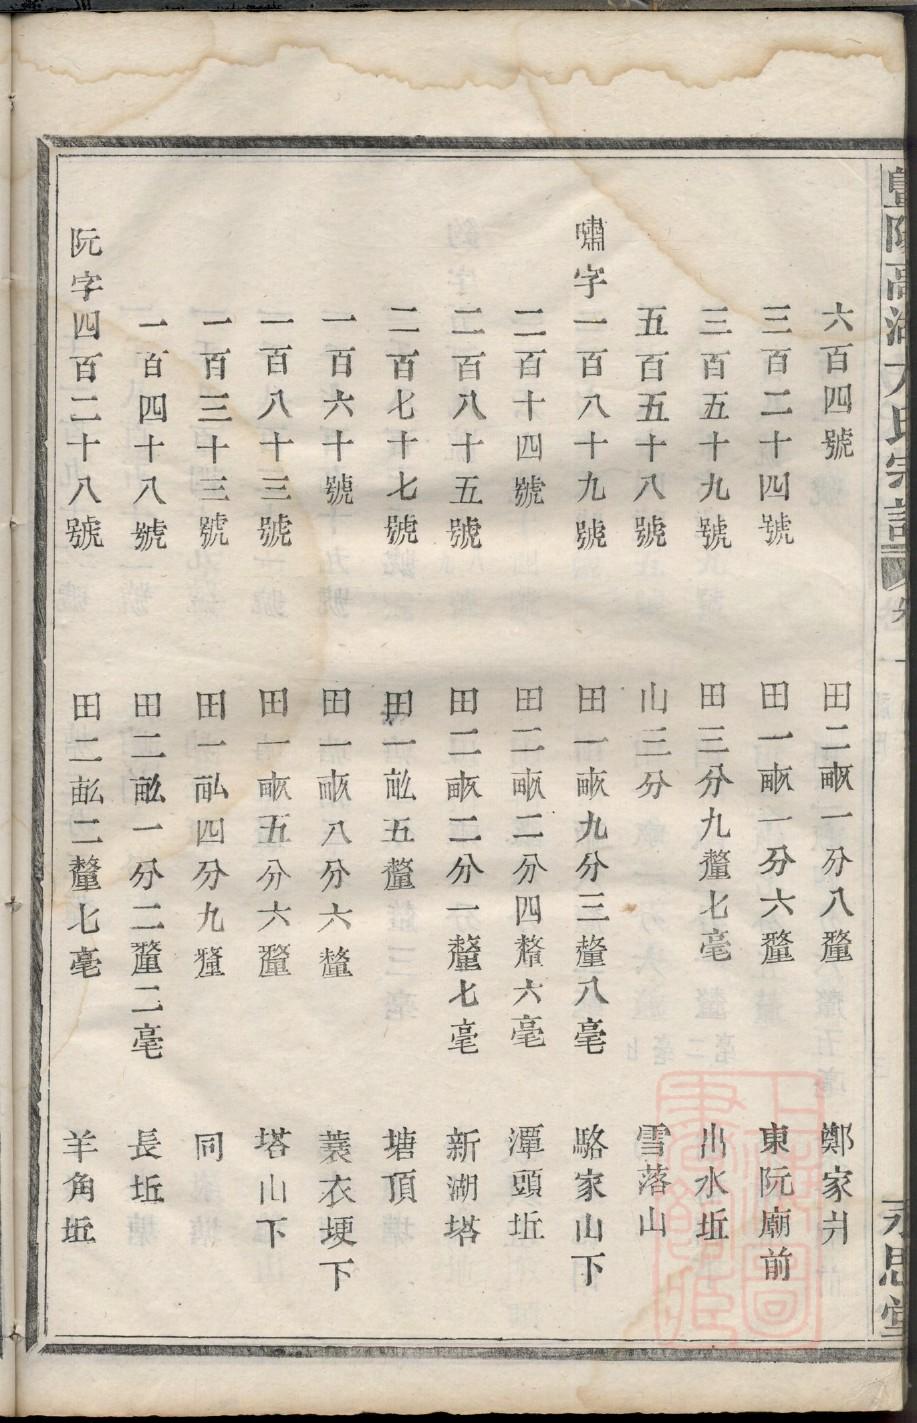 暨陽高湖方氏宗譜 卷一 永思堂
六百四號 田二畝一分八釐 鄭家廾
三百二十四號 田一畝一分六釐 東阮廟前
三百五十九號 田三分九釐七毫 出水坵
五百五十八號 山三分 雪落山
嘯字一百八十九號 田一畝九分三釐八毫 駱家山下
二百十四號 田二畝二分四釐六毫 潭頭坵
二百八十五號 田二畝二分一釐七毫 新湖塔
二百七十七號 田一畝五釐 塘頂
一百六十號 田一畝八分六釐 蓑衣埂下
一百八十三號 田一畝五分六釐 塔山下
一百三十三號 田一畝四分九釐 同
一百四十八號 田二畝一分二釐二毫 長坵
阮字四百二十八號 田二畝二釐七毫 羊角坵